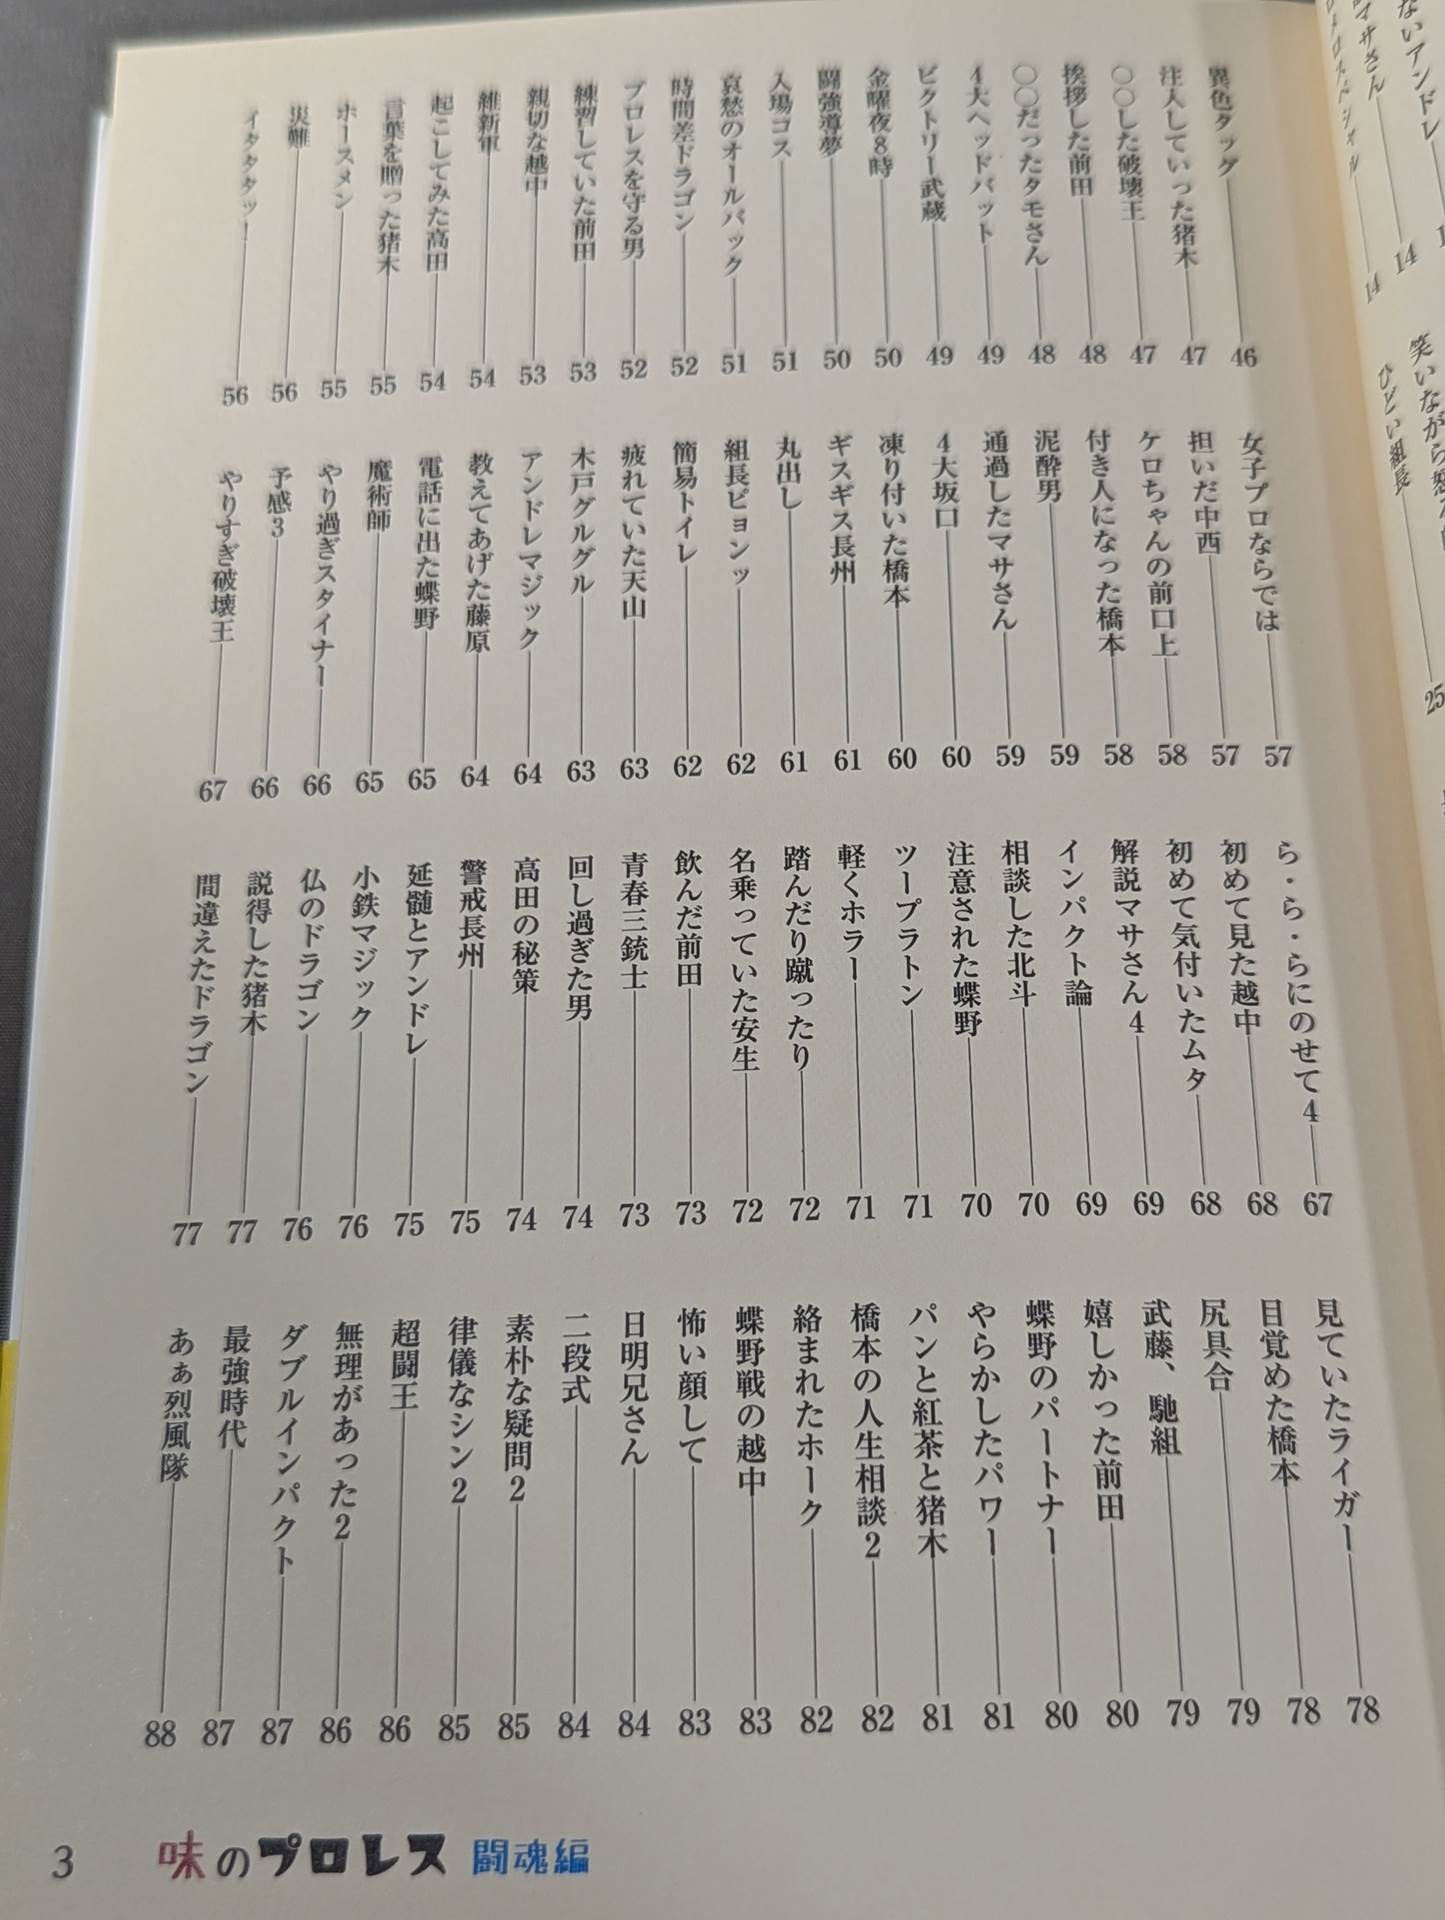 異色タッグ 46
注入していった猪木 47
〇〇した破壊王 47
挨拶した前田 48
〇〇だったタモさん 48
4大ヘッドバット 49
ビクトリー武蔵 49
金曜夜8時 50
闘強導夢 50
入場コス 51
哀愁のオールバック 51
時間差ドラゴン 52
プロレスを守る男 52
練習していた前田 53
親切な越中 53
維新軍 54
起こしてみた高田 54
言葉を贈った猪木 55
ホースメン 55
災難 56
イタタタッ! 56
女子プロならでは 57
担いだ中西 57
ケロちゃんの前口上 58
付き人になった橋本 58
泥酔男 59
通過したマサさん 59
4大坂口 60
凍り付いた橋本 60
ギスギス長州 61
丸出し 61
組長ピョンッ 62
簡易トイレ 62
疲れていた天山 63
木戸グルグル 63
アンドレマジック 64
教えてあげた藤原 64
電話に出た蝶野 65
魔術師 65
やり過ぎスタイナー 66
予感3 66
やりすぎ破壊王 67
ら・ら・らにのせて4 67
初めて見た越中 68
初めて気付いたムタ 68
解説マサさん4 69
インパクト論 69
相談した北斗 70
注意された蝶野 70
ツープラトン 71
軽くホラー 71
踏んだり蹴ったり 72
名乗っていた安生 72
飲んだ前田 73
青春三銃士 73
回し過ぎた男 74
高田の秘策 74
警戒長州 75
延髄とアンドレ 75
小鉄マジック 76
仏のドラゴン 76
説得した猪木 77
間違えたドラゴン 77
見ていたライガー 78
目覚めた橋本 78
尻具合 79
武藤、馳組 79
嬉しかった前田 80
蝶野のパートナー 80
やらかしたパワー 81
パンと紅茶と猪木 81
橋本の人生相談2 82
絡まれたホーク 82
蝶野戦の越中 83
怖い顔して 83
日明兄さん 84
二段式 84
素朴な疑問2 85
律儀なシン2 85
超闘王 86
無理があった2 86
ダブルインパクト 87
最強時代 87
あぁ烈風隊 88
3 味のプロレス 闘魂編
ないアンドレ
マサさん 14
14
ひどい組長
25